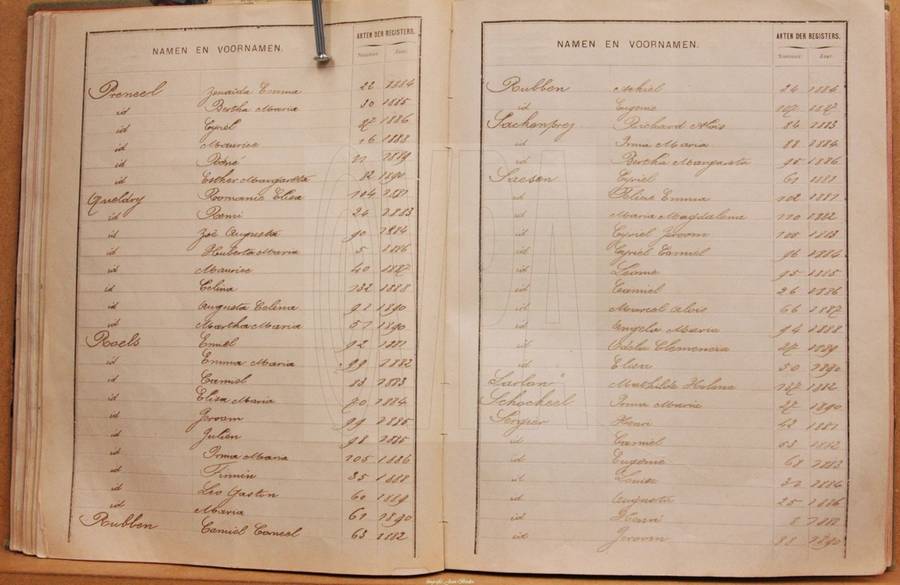 NAMEN EN VOORNAMEN. AKTEN DER REGISTERS.
Nummer. Jaar.
Preneel Zenaïda Emma 22 1884
id Bertha Maria 30 1885
id Cyriel 27 1886
id Maurice 16 1888
id René 21 1889
id Esther Margaretha 82 1890
Queldry Romanie Elisa 104 1881
id Remi 24 1883
id Zoë Augusta 90 1884
id Huberta Maria 5 1886
id Maurice 40 1887
id Celina 132 1888
id Augusta Celina 91 1890
id Martha Maria 57 1890
Roels Emiel 92 1881
id Emma Maria 99 1882
id Camiel 83 1883
id Elisa Maria 70 1884
id Jeroom 99 1885
id Julien 98 1885
id Irma Maria 105 1886
id Firmin 35 1888
id Leo Gaston 60 1889
id Maria 61 1890
Rubben Camiel Corneel 63 1882
NAMEN EN VOORNAMEN. AKTEN DER REGISTERS.
Nummer. Jaar.
Rubben Achiel 24 1886
id Eugenie 107 1887
Richard Alois 84 1883
id Irma Maria 88 1884
id Bertha Margareta 95 1886
Saesen Cyriel 61 1881
id Emma 102 1881
id Maria Magdalena 110 1882
id Cyriel Jeroom 100 1883
id Cyriel Camiel 96 1884
id Leonie 95 1885
id Camiel 26 1886
id Marcel Alois 66 1887
id Angela Maria 94 1888
id Odila Clemencia 27 1889
id Elisa 30 1890
Mathilde Helena 127 1882
Schockeel Irma Maria 27 1890
Henri 42 1881
id Camiel 1882
id Eugenie 68 1883
id Louisa 32 1884
id Augusta 25 1886
id Henri 8 1888
id Jeroom 33 1890